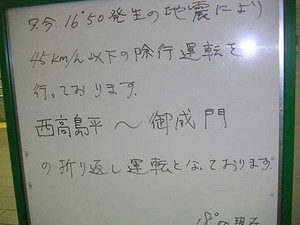 只今、16°50発生の地震により
45km/h以下の除行運転を
行っております。
西高島平～御成門
の折り返し運転となっております。